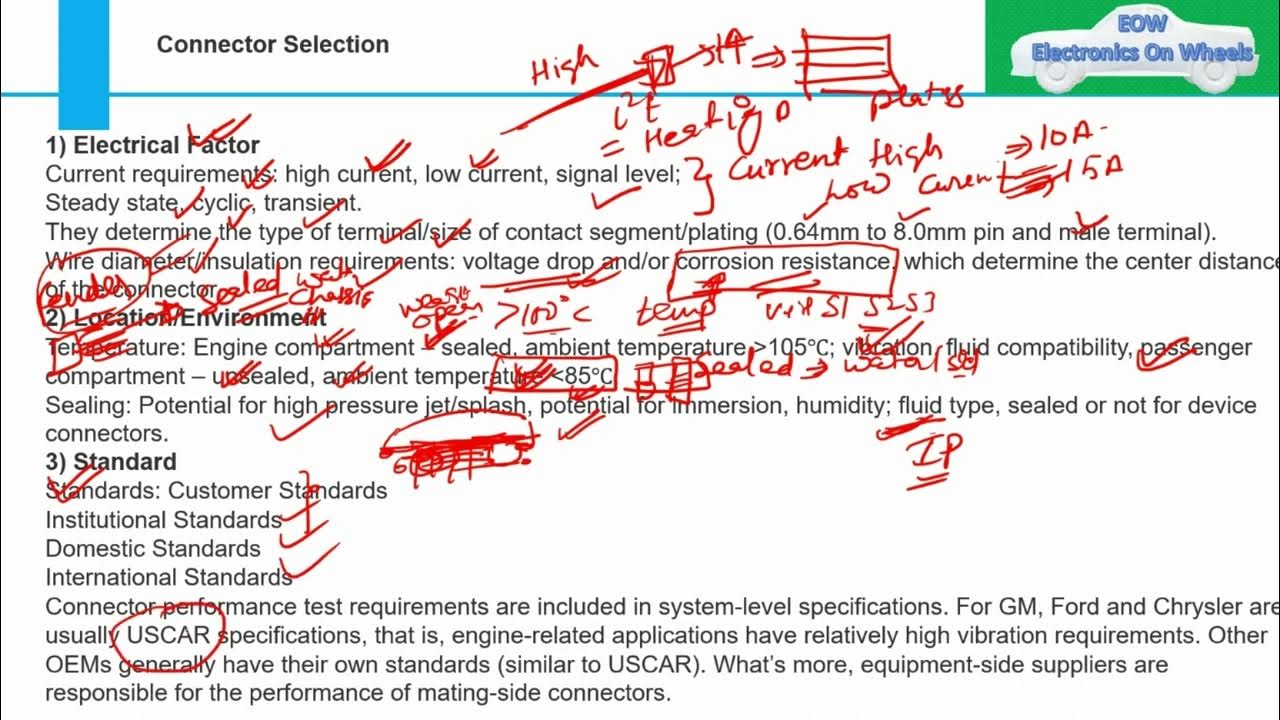 Connector Selection
EOW
Electronics On Wheels
High
1A ⇒
plates
i²t
= Heating
1) Electrical Factor
Current requirements: high current, low current, signal level;
} Current High ⇒ 10A
Low Current ⇒ 15A
Steady state, cyclic, transient.
They determine the type of terminal/size of contact segment/plating (0.64mm to 8.0mm pin and male terminal).
Wire diameter/insulation requirements: voltage drop and/or corrosion resistance, which determine the center distance
of the connector
sealed
>100°C
temp
S1 S2 S3
2) Location/Environment
Temperature: Engine compartment – sealed, ambient temperature >105℃; vibration, fluid compatibility, passenger
compartment – unsealed, ambient temperature <85℃
Sealed →
Sealing: Potential for high pressure jet/splash, potential for immersion, humidity; fluid type, sealed or not for device
connectors.
IP
3) Standard
Standards: Customer Standards
Institutional Standards
Domestic Standards
International Standards
Connector performance test requirements are included in system-level specifications. For GM, Ford and Chrysler are
usually USCAR specifications, that is, engine-related applications have relatively high vibration requirements. Other
OEMs generally have their own standards (similar to USCAR). What's more, equipment-side suppliers are
responsible for the performance of mating-side connectors.